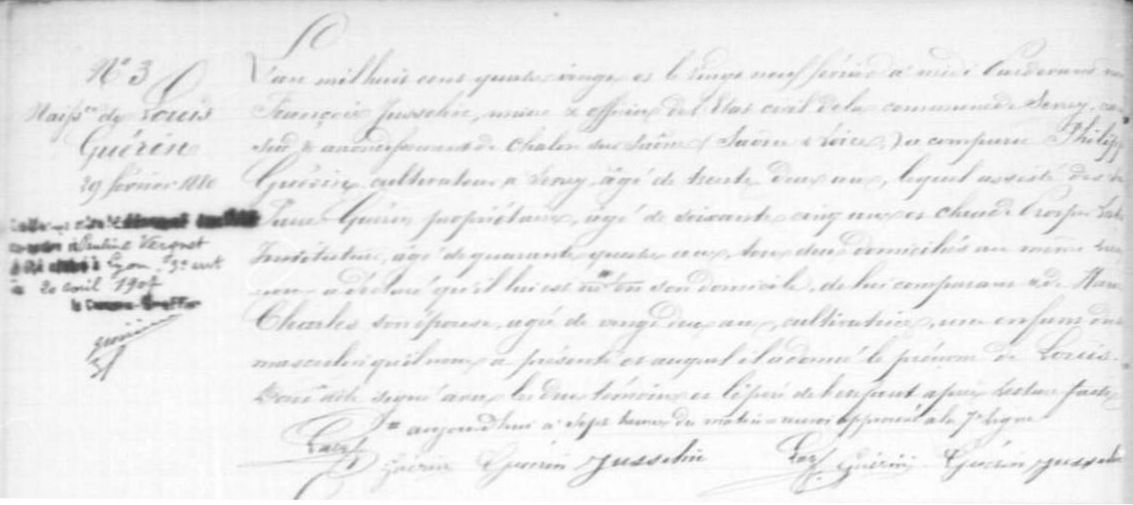 N° 3
Naiss.ce de Louis
Guérin
29 février 1880
à Pauline Vergnet
à Lyon, 3e arrt
le 20 avril 1907
le Greffier
L'an mil huit cent quatre vingt et le vingt neuf février à midi Pardevant nous
François Jusselin, maire & officier de l'Etat civil de la commune de Sevrey, can
ton & arrondissement de Chalon sur Saône (Saône & Loire,) a comparu Philippe
Guérin, cultivateur à Sevrey, âgé de trente deux ans, lequel assisté des
Guérin propriétaire, âgé de soixante cinq ans et Claude Prosper
Instituteur, âgé de quarante quatre ans, tous deux domiciliés au même lieu
nous a déclaré qu'il lui est né en son domicile, de lui comparant & de
Charles son épouse, agée de vingt deux ans, cultivatrice, un enfant du
masculin qu'il nous a présenté et auquel il a donné le prénom de Louis.
signé avec les deux témoins et le père de l'enfant après lecture faite
aujourd'hui à sept heures du matin = renvoi approuvé à la 7e ligne
Guérin Guérin Jusselin Guérin Guérin Jusselin